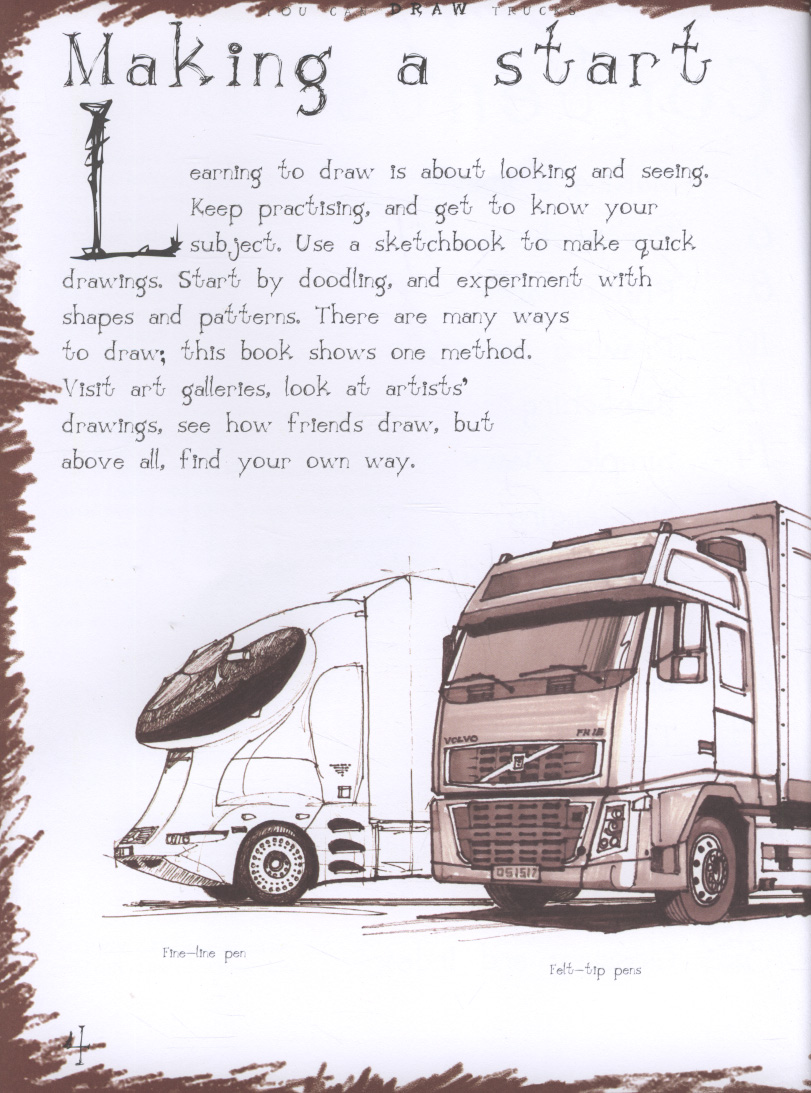 YOU CAN DRAW TRUCKS
Making a start
Learning to draw is about looking and seeing.
Keep practising, and get to know your
subject. Use a sketchbook to make quick
drawings. Start by doodling, and experiment with
shapes and patterns. There are many ways
to draw; this book shows one method.
Visit art galleries, look at artists'
drawings, see how friends draw, but
above all, find your own way.
VOLVO
FH16
OS1517
Fine-line pen
Felt-tip pens
4